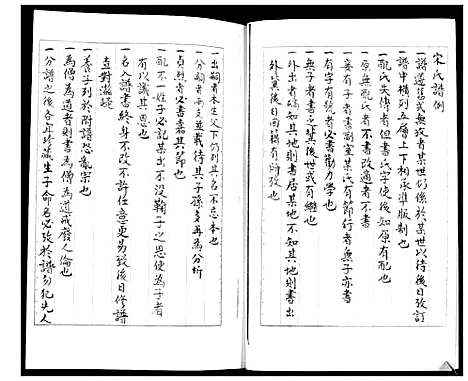 宋氏譜例
一譜遵舊式無改者某世仍係於某世以待後日改訂
一譜中橫列五層上下相承準版制也
一配氏失傳者但書氏字使後知原有配也
一原無配氏者不書改適者不書
一妾有子者則書某氏有節行者無子亦書
一有字有號者必書勸力學也
一無子者書之冀後世或有繼也
一外出者稱知其地則書居某地不知其地則書出
外冀後日回籍有所攷也
一出嗣者本生父下仍列其名不忘本也
一分嗣者兩支並載待其子孫多再為分析
一貞烈者必書著其節也
一配不一姓子必記某出不沒鞠子之恩使為子者
有以識其恩也
一名入譜書終身不改不許任意更易致後日修譜
查對滋疑
一養子列於附譜恐亂宗也
一為僧為道者則書為僧為道戒廢人倫也
一分譜之後各宜珍藏生子命名必攷於譜勿犯先人